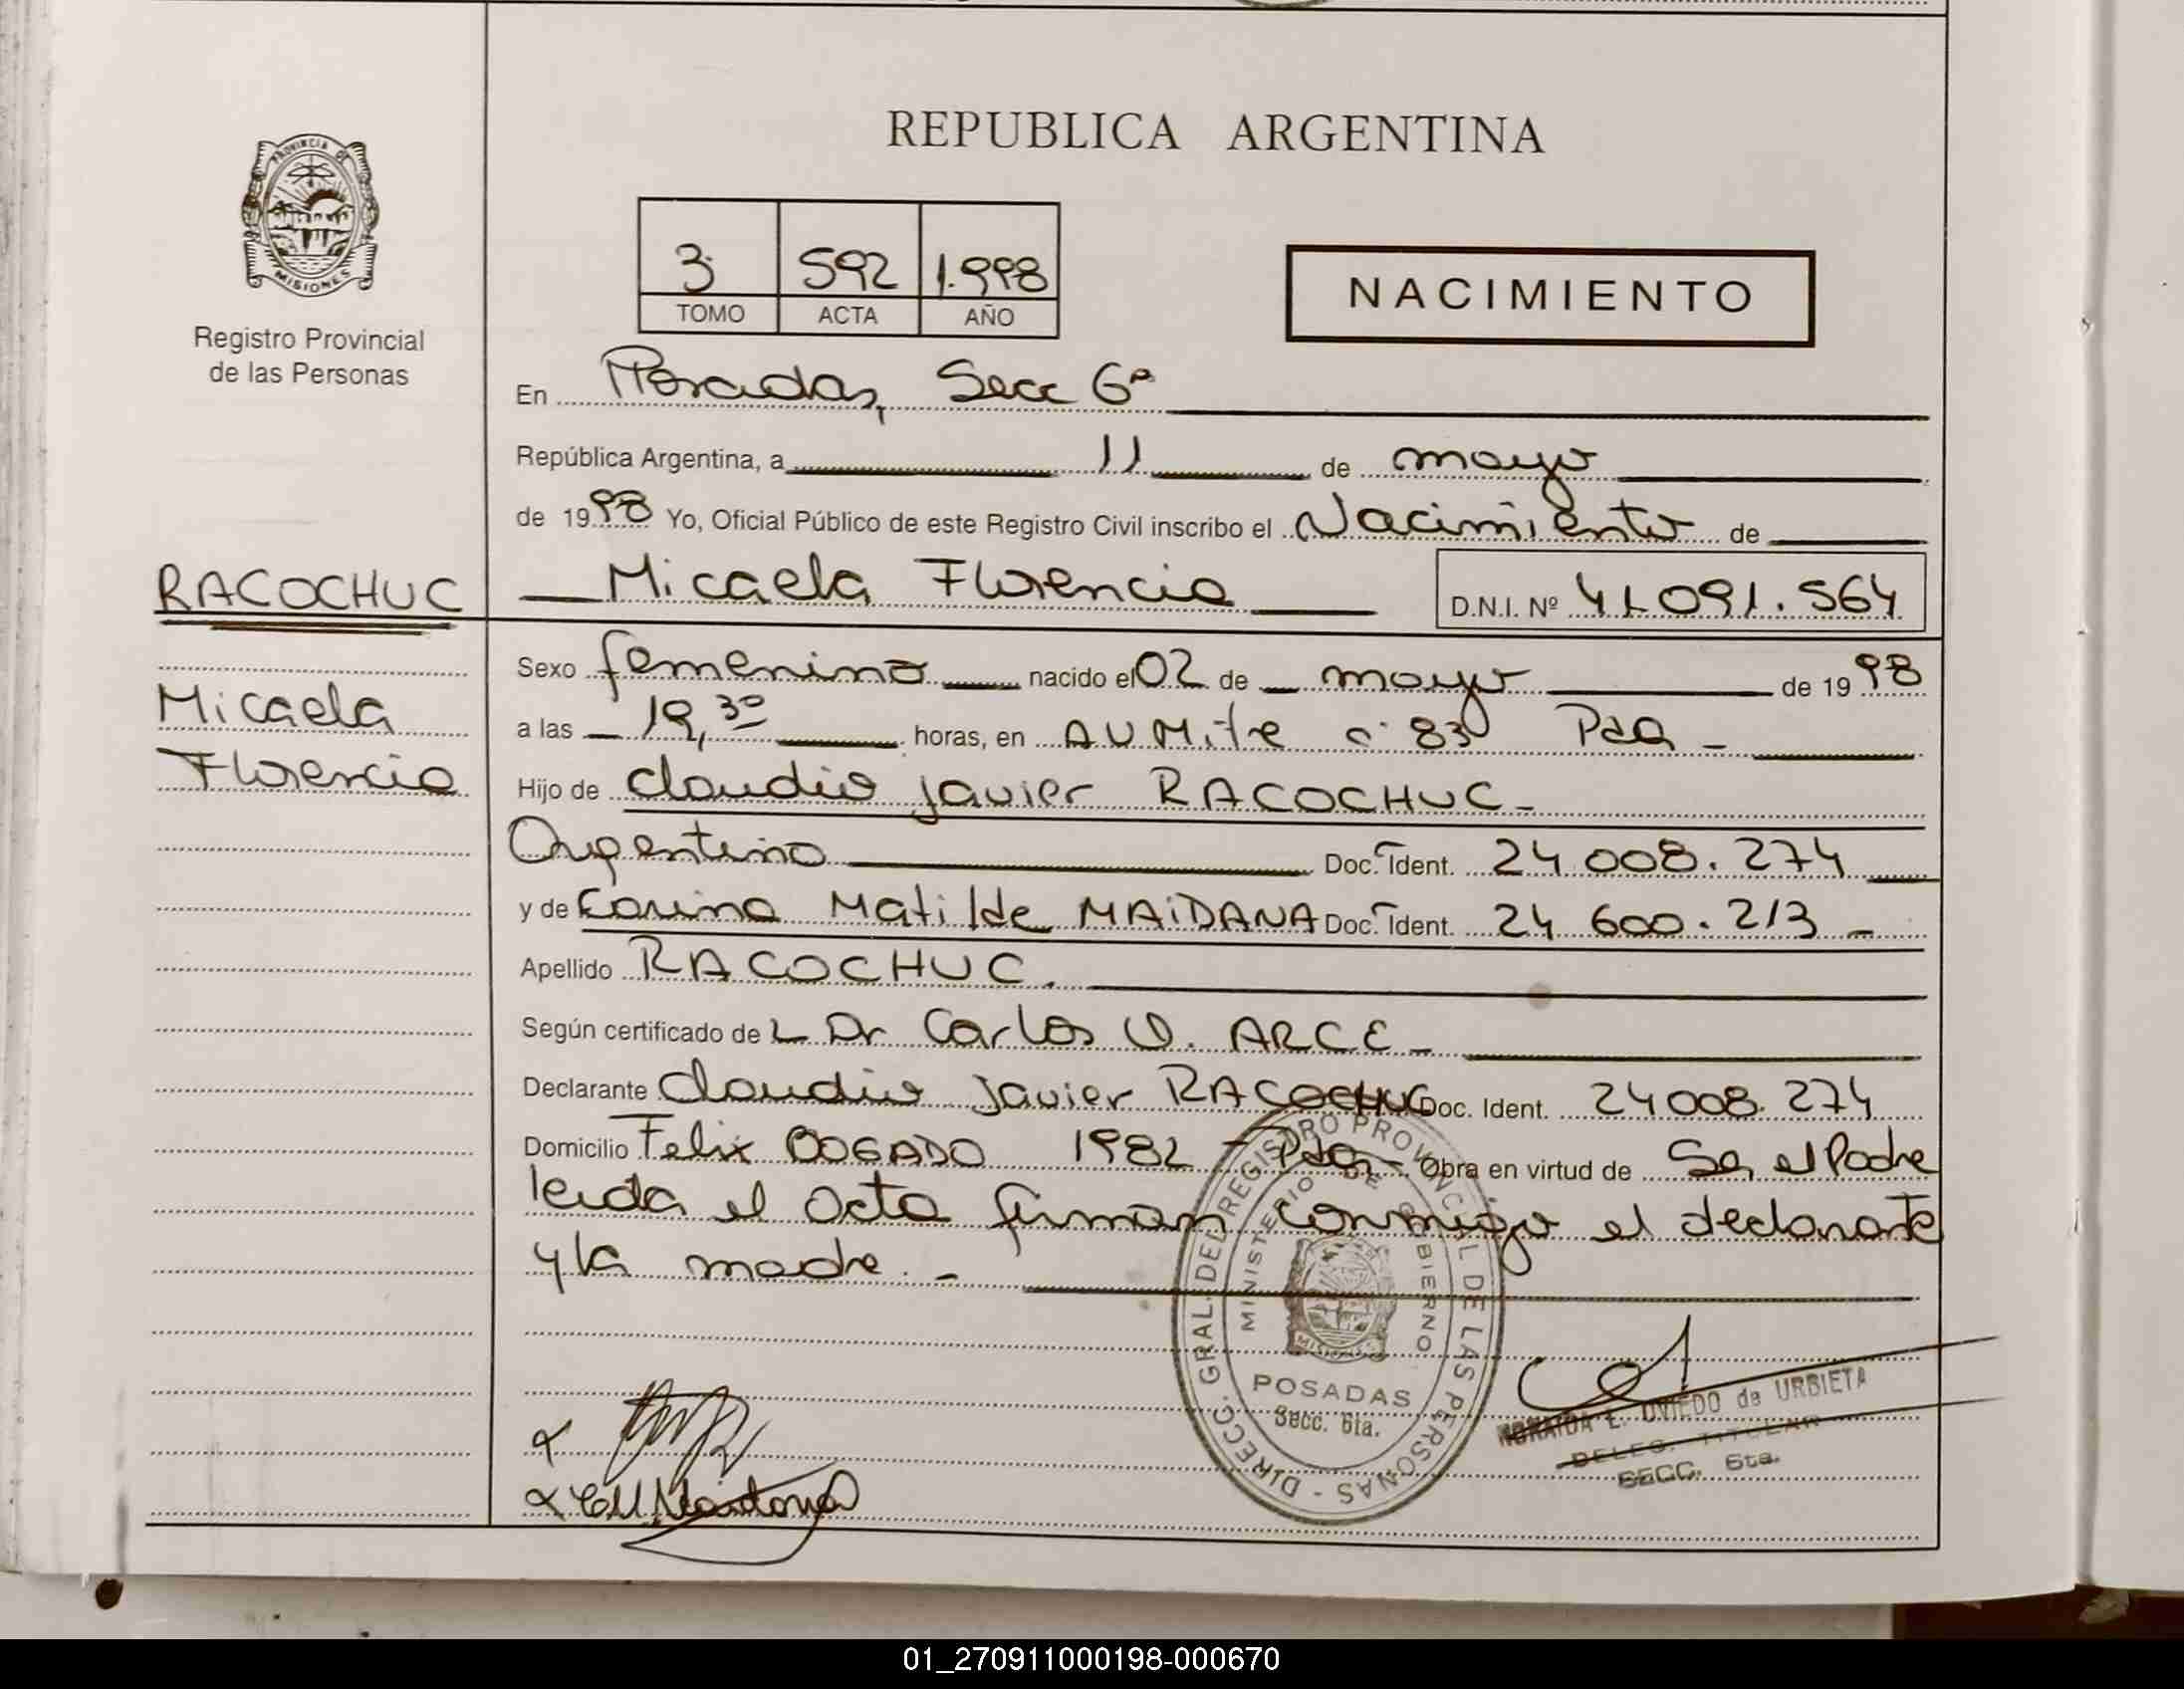 REPUBLICA ARGENTINA
PROVINCIA DE
MISIONES
Registro Provincial
de las Personas
3 592 1.998
TOMO ACTA AÑO
NACIMIENTO
En Posadas, Secc 6ª
República Argentina, a 11 de mayo
de 1998 Yo, Oficial Público de este Registro Civil inscribo el Nacimiento de
RACOCHUC
Micaela Florencia D.N.I. Nº 41.091.564
Micaela
Florencia
Sexo femenino nacido el 02 de mayo de 1998
a las 19,30 horas, en AV Mitre nº 83 Pdas -
Hijo de Claudio Javier RACOCHUC -
Argentino Doc. Ident. 24 008.274
y de Carina Matilde MAIDANA Doc. Ident. 24 600.213 -
Apellido RACOCHUC.
Según certificado de L Dr Carlos O. ARCE -
Declarante Claudio Javier RACOCHUC Doc. Ident. 24 008.274
Domicilio Felix BOGADO 1982 - Pdas - Obra en virtud de Ser el Padre
leida el acta firman conmigo el declarante
y la madre. -
DIRECC. GRAL. DEL REGISTRO PROVINCIAL DE LAS PERSONAS -
MINISTERIO DE GOBIERNO
MISIONES
POSADAS
Secc. 6ta.
NORAIDA L. OVIEDO de URBIETA
DELEG. TITULAR
SECC. 6ta.
01_270911000198-000670